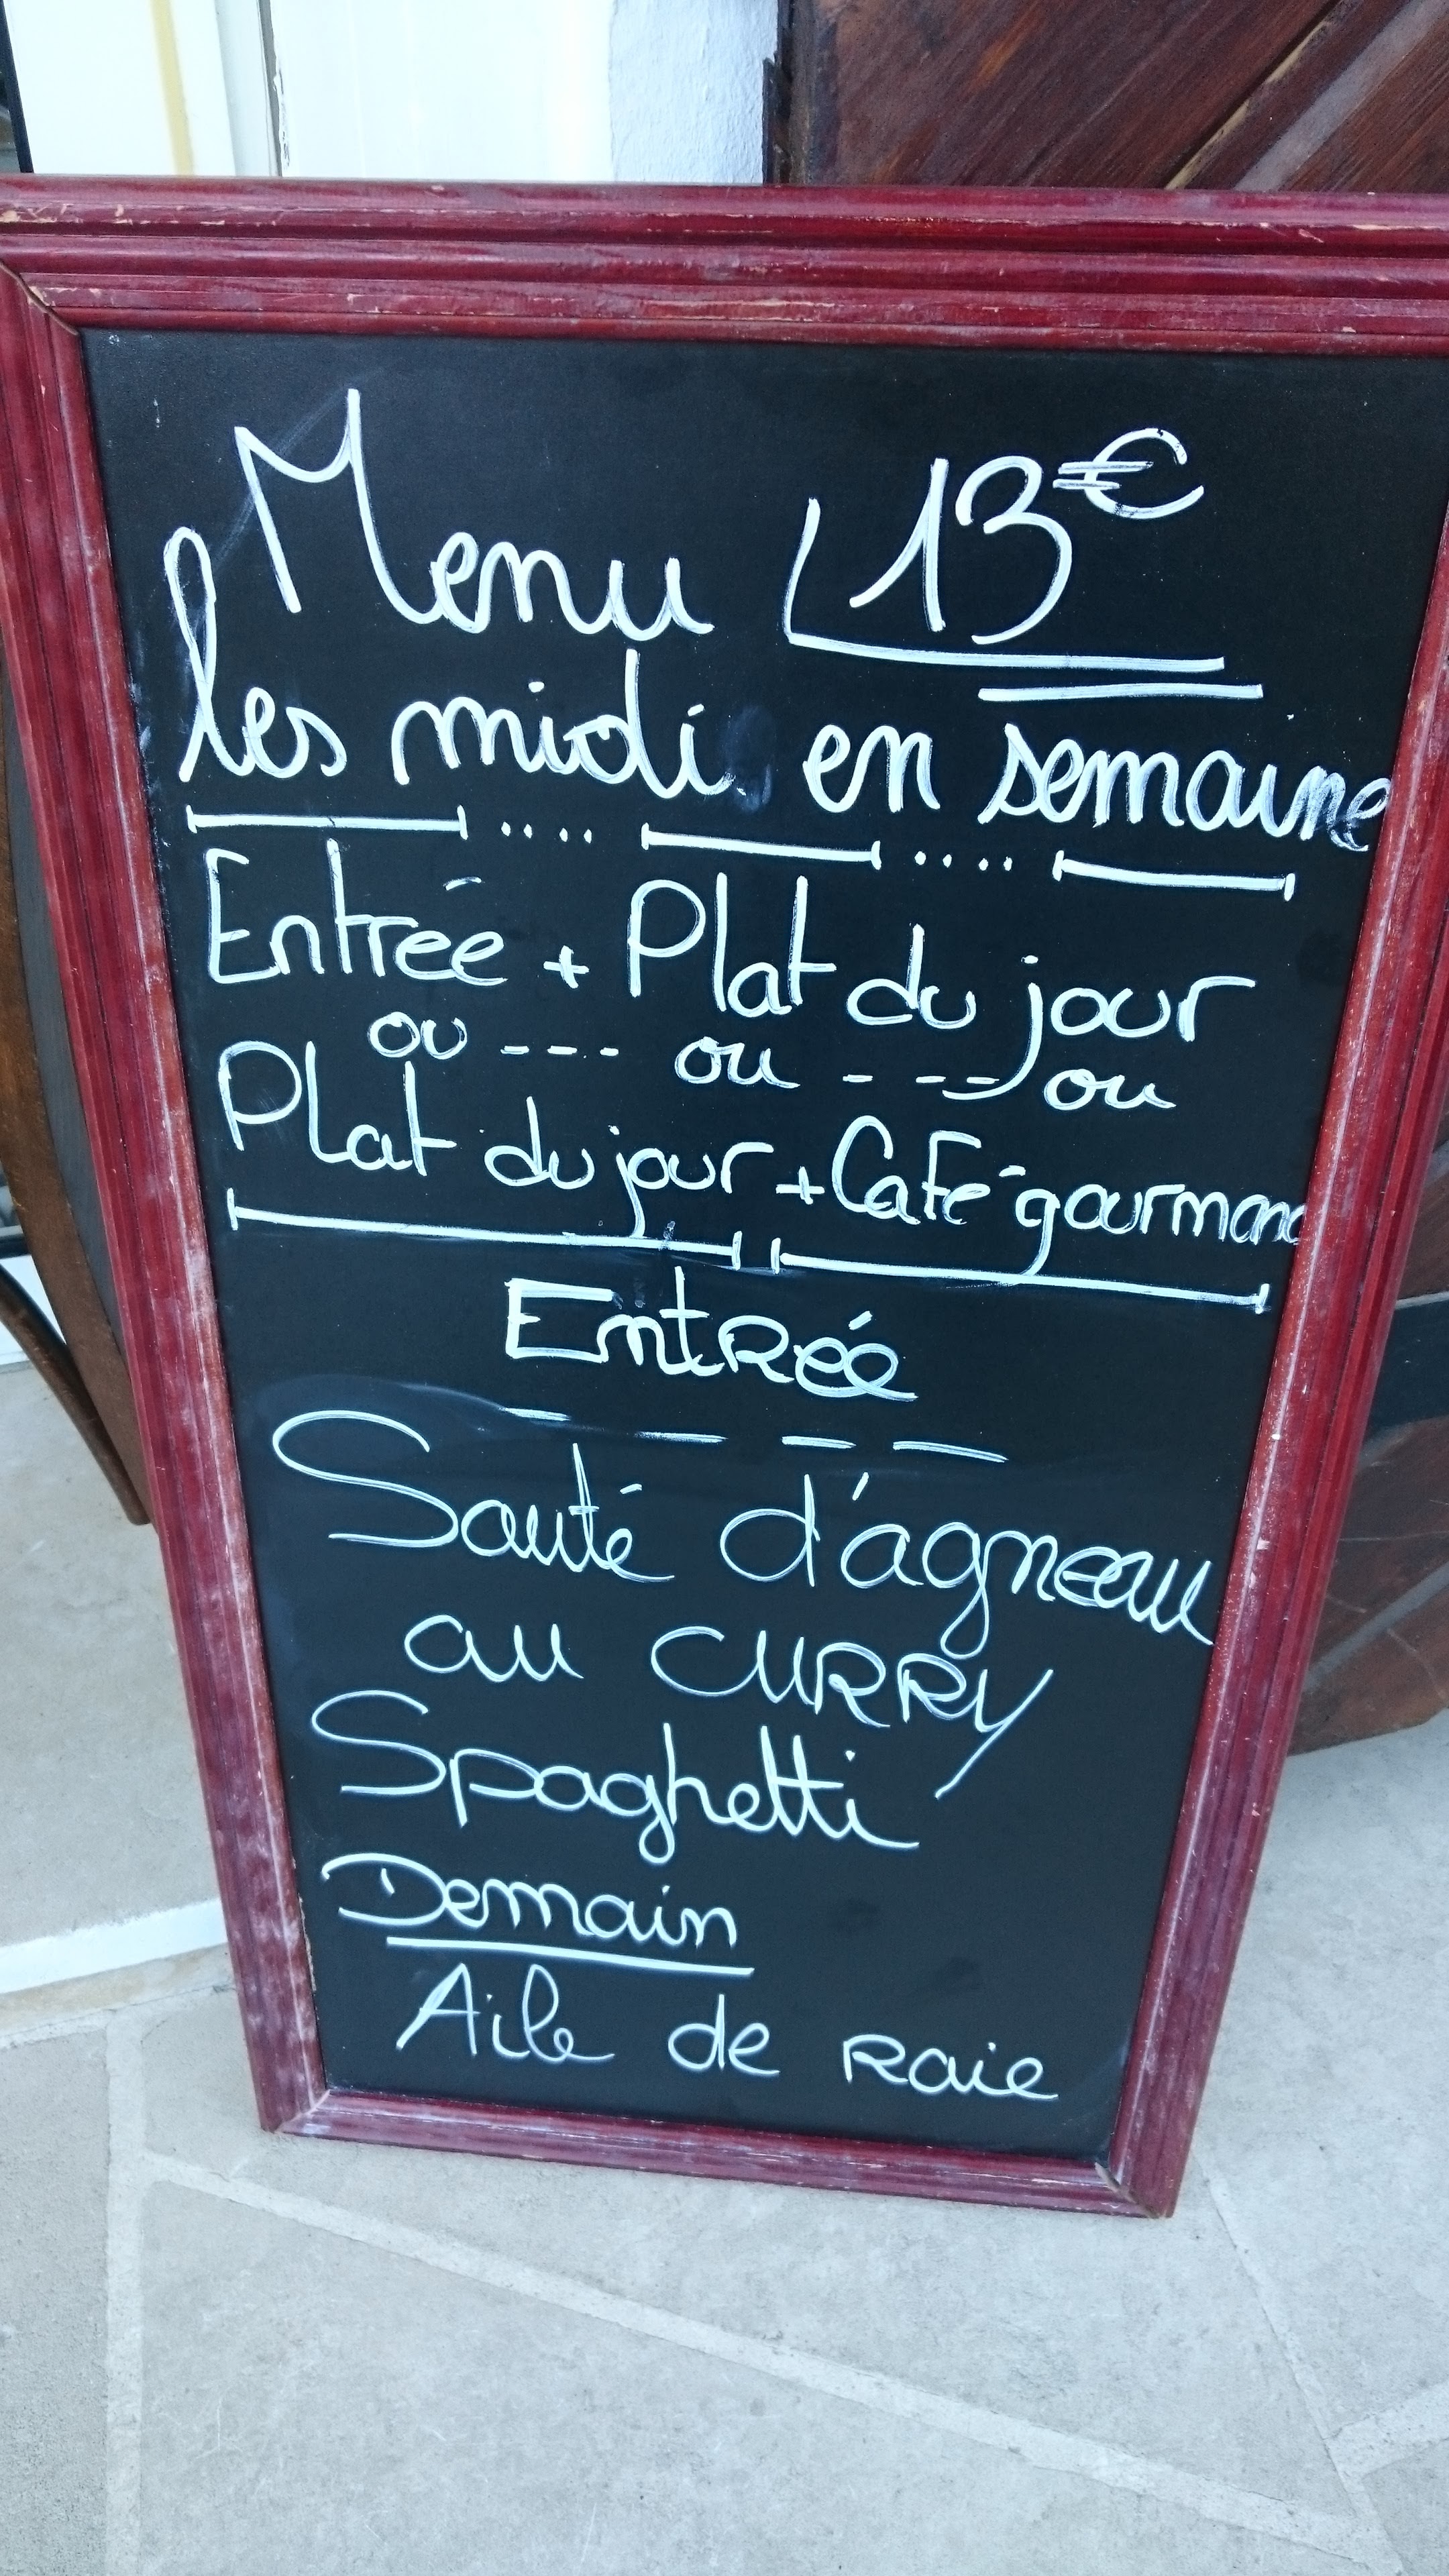 Menu 13€
les midi en semaine
Entrée + Plat du jour
ou --- ou --- ou
Plat du jour + Café gourmand
Entrée
Sauté d'agneau
au CURRY
Spaghetti
Demain
Aile de raie